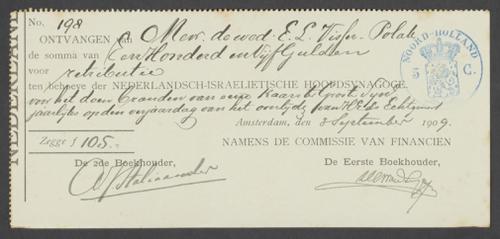 No. 198
NEDERLAND
ONTVANGEN van Mevr. de wed. E. L. Visser-Polak
de somma van Een Honderd en vijf Gulden
voor retributie
ten behoeve der NEDERLANDSCH-ISRAELIETISCHE HOOFDSYNAGOGE
voor het doen branden van eene Kaars
jaarlijks op den verjaardag van het overlijden van
Amsterdam, den 3 September 1909.
Zegge ƒ 105.-
NAMENS DE COMMISSIE VAN FINANCIEN
De 2de Boekhouder,
De Eerste Boekhouder,
NOORD-HOLLAND
5 C.